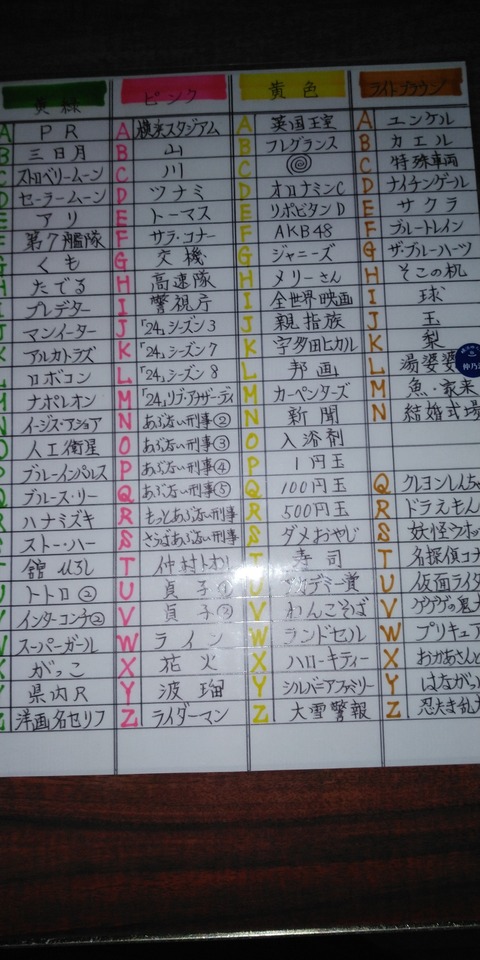 黄緑 ピンク 黄色 ライトブラウン
A PR A 横浜スタジアム A 英国王室 A ユンケル
B 三日月 B 山 B フレグランス B カエル
C ストロベリームーン C 川 C C 特殊車両
D セーラームーン D ツナミ D オロナミンC D ナイチンゲール
E アリ E トーマス E リポビタンD E サクラ
F 第7艦隊 F サラ・コナー F AKB48 F ブルートレイン
G くも G 交機 G ジャニーズ G ザ・ブルーハーツ
H たでる H 高速隊 H メリーさん H そこの机
I プレデター I 警視庁 I 全世界映画 I 球
J マンイーター J 「24」シーズン3 J 親指族 J 玉
K アルカトラズ K 「24」シーズン7 K 宇多田ヒカル K 梨
L ロボコン L 「24」シーズン8 L 邦画 L 湯婆婆
M ナポレオン M 「24」リブ・アナザーデイ M カーペンターズ M 魚・家来
N イージス・アショア N あぶない刑事② N 新聞 N 結婚式場
O 人工衛星 O あぶない刑事③ O 入浴剤
P ブルーインパルス P あぶない刑事④ P 1円玉
Q ブルース・リー Q あぶない刑事⑤ Q 100円玉 Q クレヨンしんちゃ
R ハナミズキ R もっとあぶない刑事 R 500円玉 R ドラえもん
S ストー・ハー S さらばあぶない刑事 S ダメおやじ S 妖怪ウォッ
T 舘ひろし T 仲村トオル T 寿司 T 名探偵コナ
U トトロ② U 貞子① U アカデミー賞 U 仮面ライダ
V インターコンチ② V 貞子② V わんこそば V ゲゲゲの鬼太
W スーパーガール W ライン W ランドセル W プリキュア
X がっこ X 花火 X ハローキティー X おかあさんと
Y 県内R Y 波瑠 Y シルバニアファミリー Y はなかっ
Z 洋画名セリフ Z ライダーマン Z 大雪警報 Z 忍たま乱太